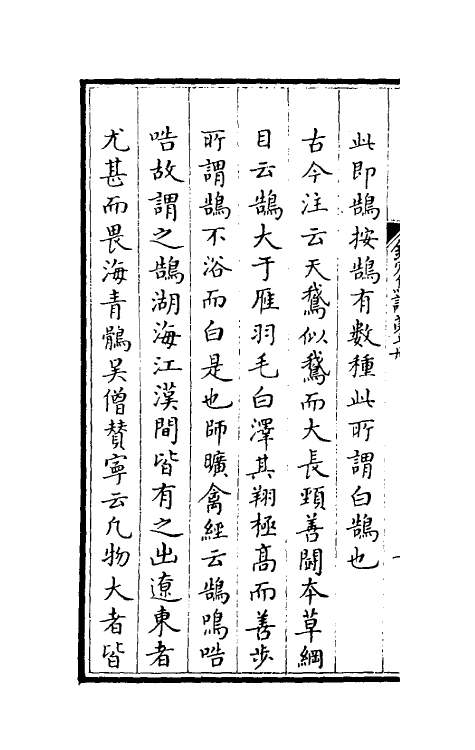 此即鵠按鵠有数種此所謂白鵠也
古今注云天鵞似鵞而大長頸善鬪本草綱
目云鵠大于雁羽毛白澤其翔極高而善步
所謂鵠不浴而白是也師曠禽經云鵠鳴哠
哠故謂之鵠湖海江漢間皆有之出遼東者
尤甚而畏海青鶻吴僧賛寧云凡物大者皆